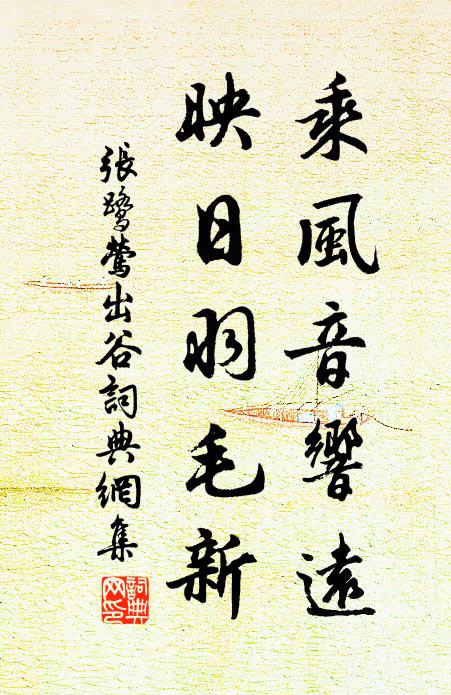 乘風音響遠
映日羽毛新
張鷺鶯出谷詞典網集
詞典
网印